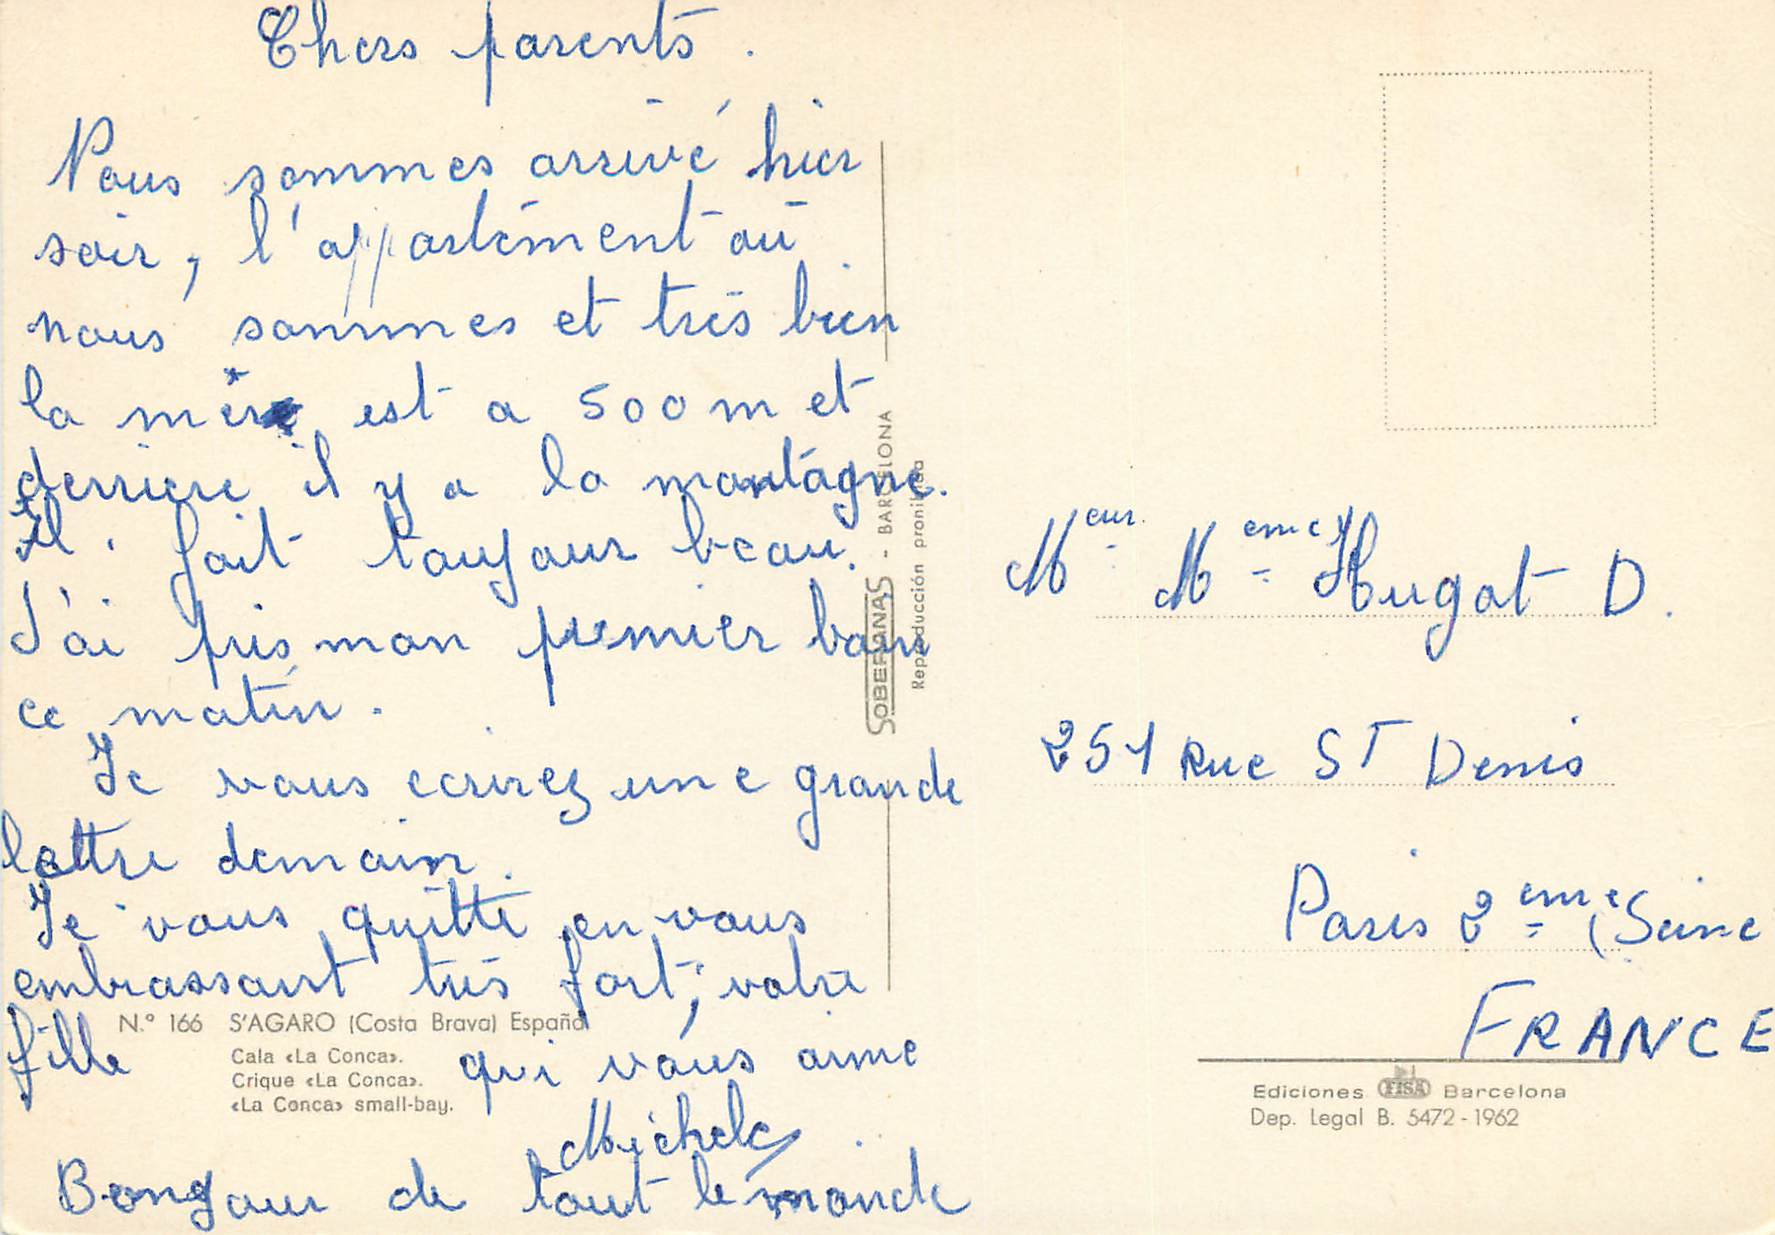 Chers parents.
Nous sommes arrivé hier
soir, l'appartement où
nous sommes et très bien
la mère est a 500 m et
derriere il y a la montagne.
Il fait toujour beau.
J'ai pris mon premier bain
ce matin.
Je vous ecrirez une grande
lettre demain.
Je vous quitte en vous
embrassant très fort, votre
fille qui vous aime
Michele
Bongour de tout le monde
N.º 166 S'AGARO (Costa Brava) España
Cala «La Conca».
Crique «La Conca».
«La Conca» small-bay.
SOBERANAS - BARCELONA
Reproducción prohibida
Meur. Meme Hugot D.
251 Rue ST Denis
Paris 2eme (Seine
FRANCE
Ediciones FISA Barcelona
Dep. Legal B. 5472-1962